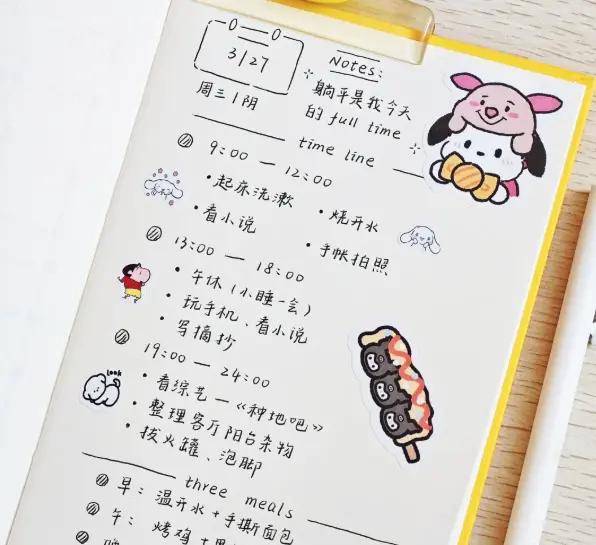 3/27
周三/阴
Notes:
躺平是我今天
的 full time
time line
9:00 — 12:00
• 起床洗漱
• 烧开水
• 看小说
• 手帐拍照
13:00 — 18:00
• 午休（小睡一会）
• 玩手机、看小说
• 写摘抄
19:00 — 24:00
look
• 看综艺—《种地吧》
• 整理客厅阳台杂物
• 拔火罐、泡脚
three meals
早：温开水+手撕面包
午：烤鸡+